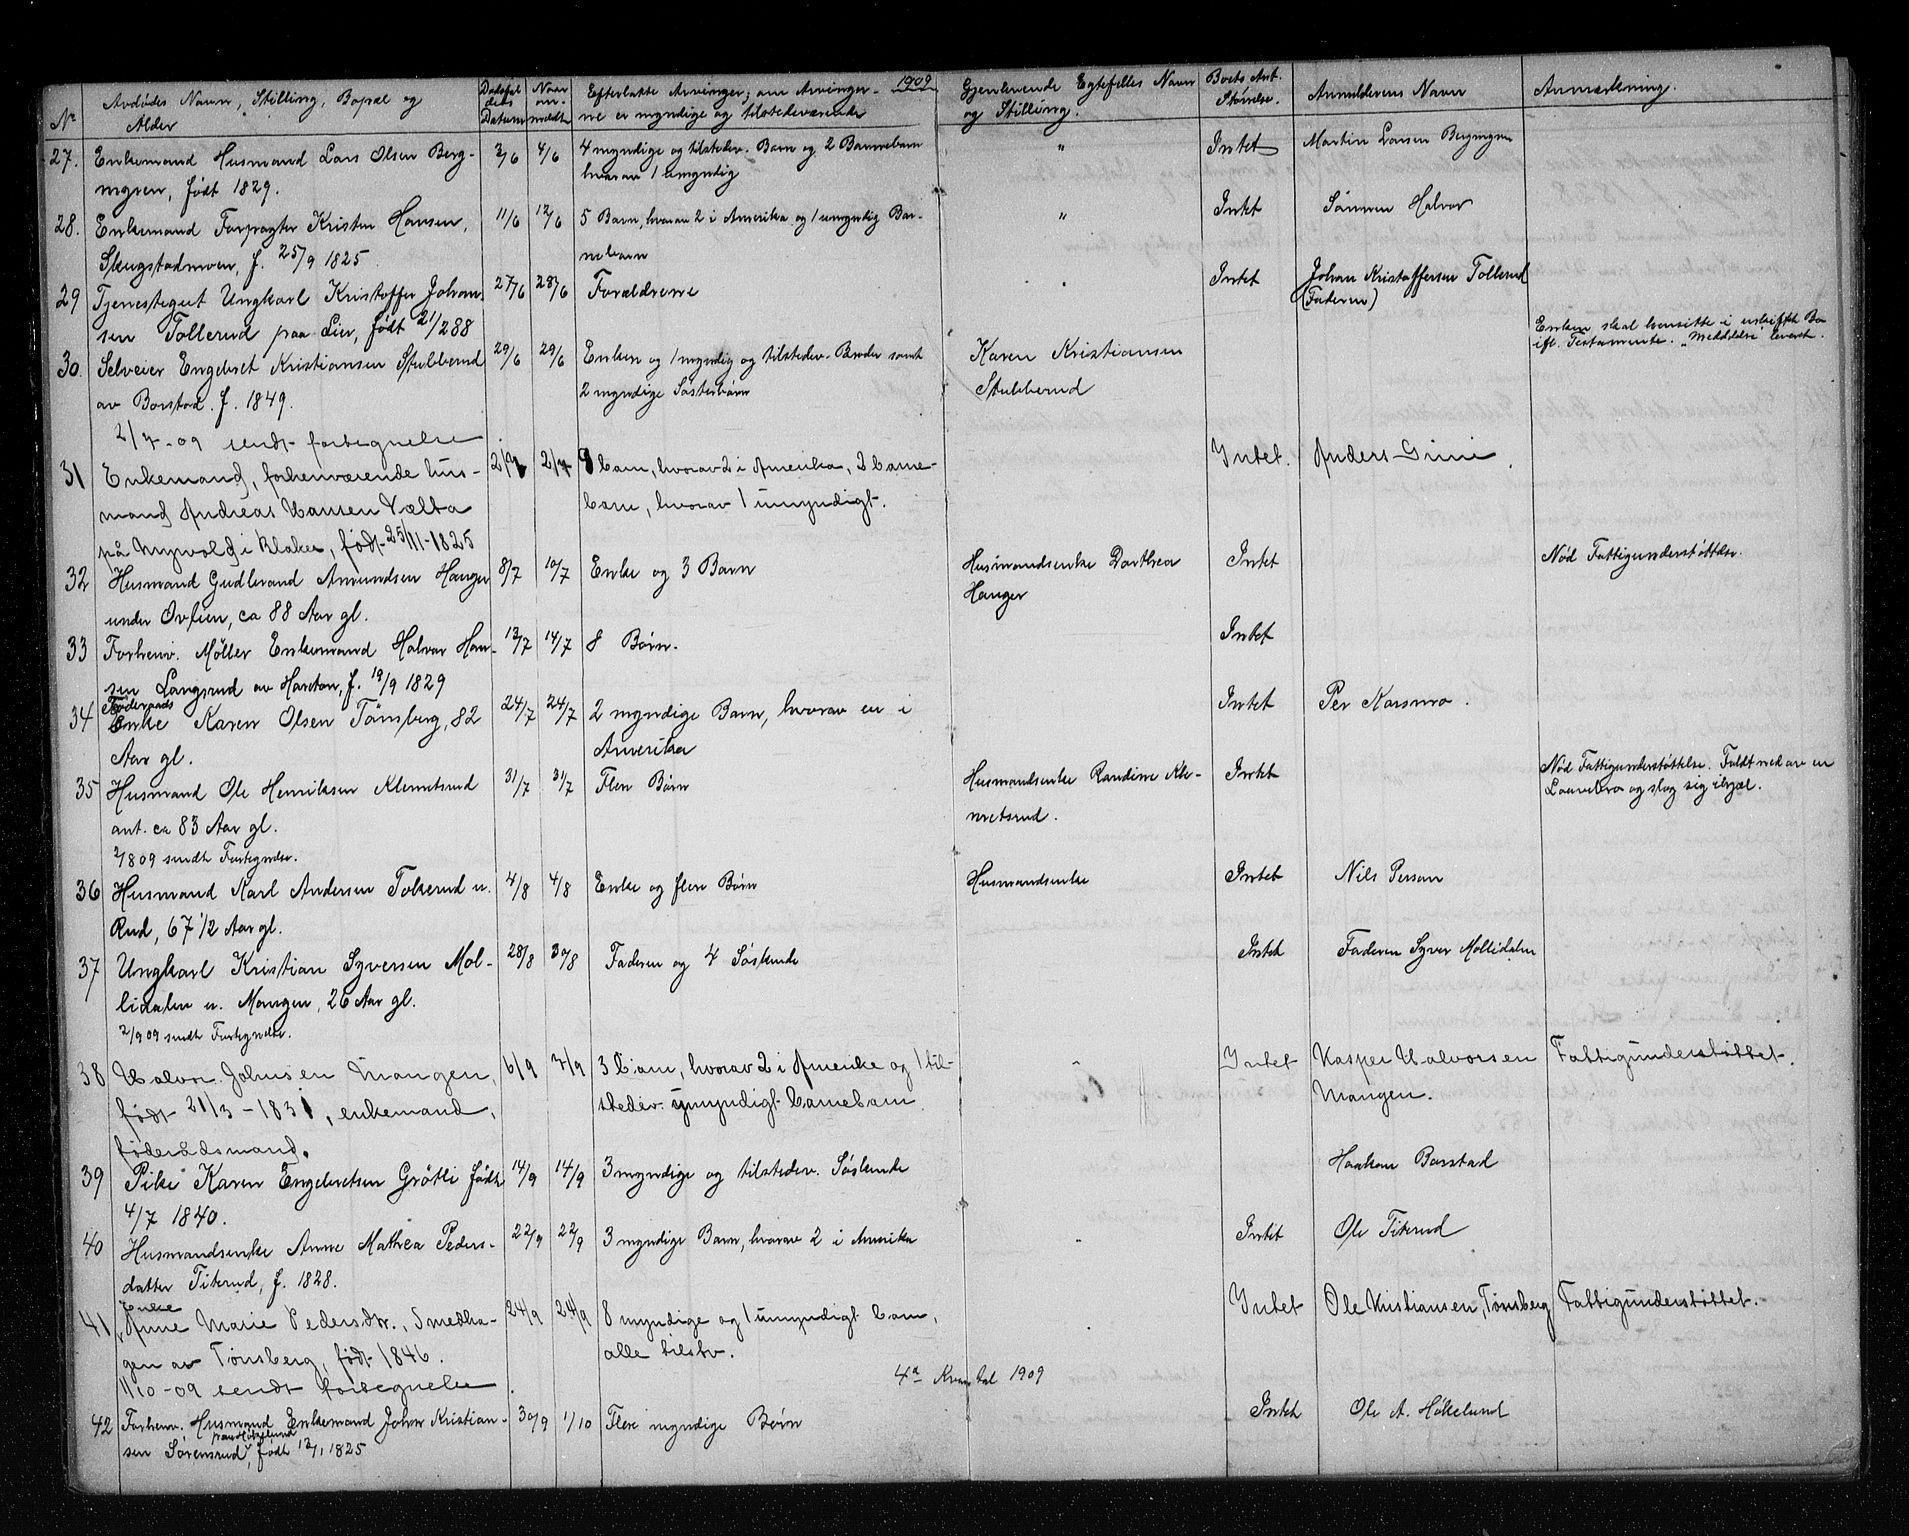 1909
No
Avdødes Navn, Stilling, Bopæl og
Alder
Dødsfal
dets
Datum
Naar
an-
meldte
Efterlatte Arvinger; om Arvinger-
ne er myndige og tilstedeværende
Gjenlevende Egtefelles Navn
og Stilling.
Boets Ant.
Størrelse.
Anmelderens Navn
Anmerkning.
27. Enkemand Husmand Lars Olsen Berg- 3/6 4/6 4 myndige og tilstedev. Barn og 2 Barnebarn " Intet Martin Larsen Bergmyren
myren, født 1829. hvorav 1 umyndig
28. Enkemand Forpagter Kristen Hansen, 11/6 12/6 5 Barn, hvorav 2 i Amerika og 1 umyndig Bar- " Intet Halvor
Skugstadmoen, f. 25/9 1825 nebarn
29 Tjenestegut Ungkarl Kristoffer Johan- 27/6 28/6 Forældrene " Intet Johan Kristoffersen Tollerud
sen Tollerud paa Lier, født 21/2 88 (Faderen)
30. Selveier Engebret Kristiansen Stubberud 29/6 29/6 Enken og 1 myndig og tilstedev. Broder samt Karen Kristiansen Enken skal hensitte i uskiftet Bo
av Borstad. f. 1849. 2 myndige Søsterbørn Stubberud ifl. Testamente. "Meddelse" leveret.
2/7-09 sendt fortegnelse
31 Enkemand, forhenværende hus- 2/7 2/7 barn, hvorav 2 i Amerika, 2 barne- Intet. Anders Grini
mand Andreas Hansen Vælta barn, hvorav 1 umyndigt.
på Myrvold i Blaker, født 25/11-1825
32 Husmand Gudbrand Amundsen Hanger 8/7 10/7 Enke og 3 Barn Husmandsenke Dorthea Intet Nød Fattigunderstøttelse.
under Ovlien, ca 88 Aar gl. Hanger
33 Forhenv. Møller Enkemand Halvor Han- 13/7 14/7 8 Børn. Intet
sen Langsrud av Harstan, f. 19/9 1829
34 Føderaads
Enke Karen Olsen Tønsberg, 82 24/7 24/7 2 myndige Barn, hvorav en i Intet Per Korsmo.
Aar gl. Amerika
35 Husmand Ole Henriksen Klemetsrud 31/7 31/7 Flere Børn Husmandsenke Randine Kle- Intet Nød Fattigunderstøttelse. Faldt ned av en
ant. ca 83 Aar gl. metsrud. Laavebro og slog sig ihjæl.
2/8 09 sendt Fortegnelse.
36 Husmand Karl Andersen Tokerud u. 4/8 4/8 Enke og flere Børn Husmandsenke Intet Nils Person
Rud, 67 1/2 Aar gl.
37 Ungkarl Kristian Syversen Mol- 28/8 30/8 Faderen og 4 Søskende Intet Faderen Syver Mollidalen
lidalen u. Mangen, 26 Aar gl.
2/9 09 sendt Fortegnelse.
38 Halvor Johnsen Mangen, 6/9 7/9 3 barn, hvorav 2 i Amerika og 1 til- " Intet Kasper Halvorsen Fattigunderstøttet.
født 21/3-1831, enkemand, stedev. umyndigt barnebarn. Mangen.
føderådsmand.
39 Pike Karen Engebretsen Grøtli født 14/9 14/9 3 myndige og tilstedev. Søskende Haakon Borstad
4/7 1840.
40 Husmandsenke Anne Mathea Peders- 22/9 22/9 3 myndige Barn, hvorav 2 i Amerika " Intet Ole Titerud
datter Titerud, f. 1828.
41 Enke
Anne Marie Pedersdtr., Smedha- 24/9 24/9 8 myndige og 1 umyndigt barn, Intet Ole Kristiansen, Tønsberg Fattigunderstøttet.
gen av Tønsberg, født 1846. alle tilstv.
1/10-09 sendt fortegnelse 4de Kvartal 1909
42 Forhenv. Husmand Enkemand Johan Kristian- 30/9 1/10 Flere myndige Børn Intet Ole A. Høkelund
sen Sørensrud, født 12/1 1825